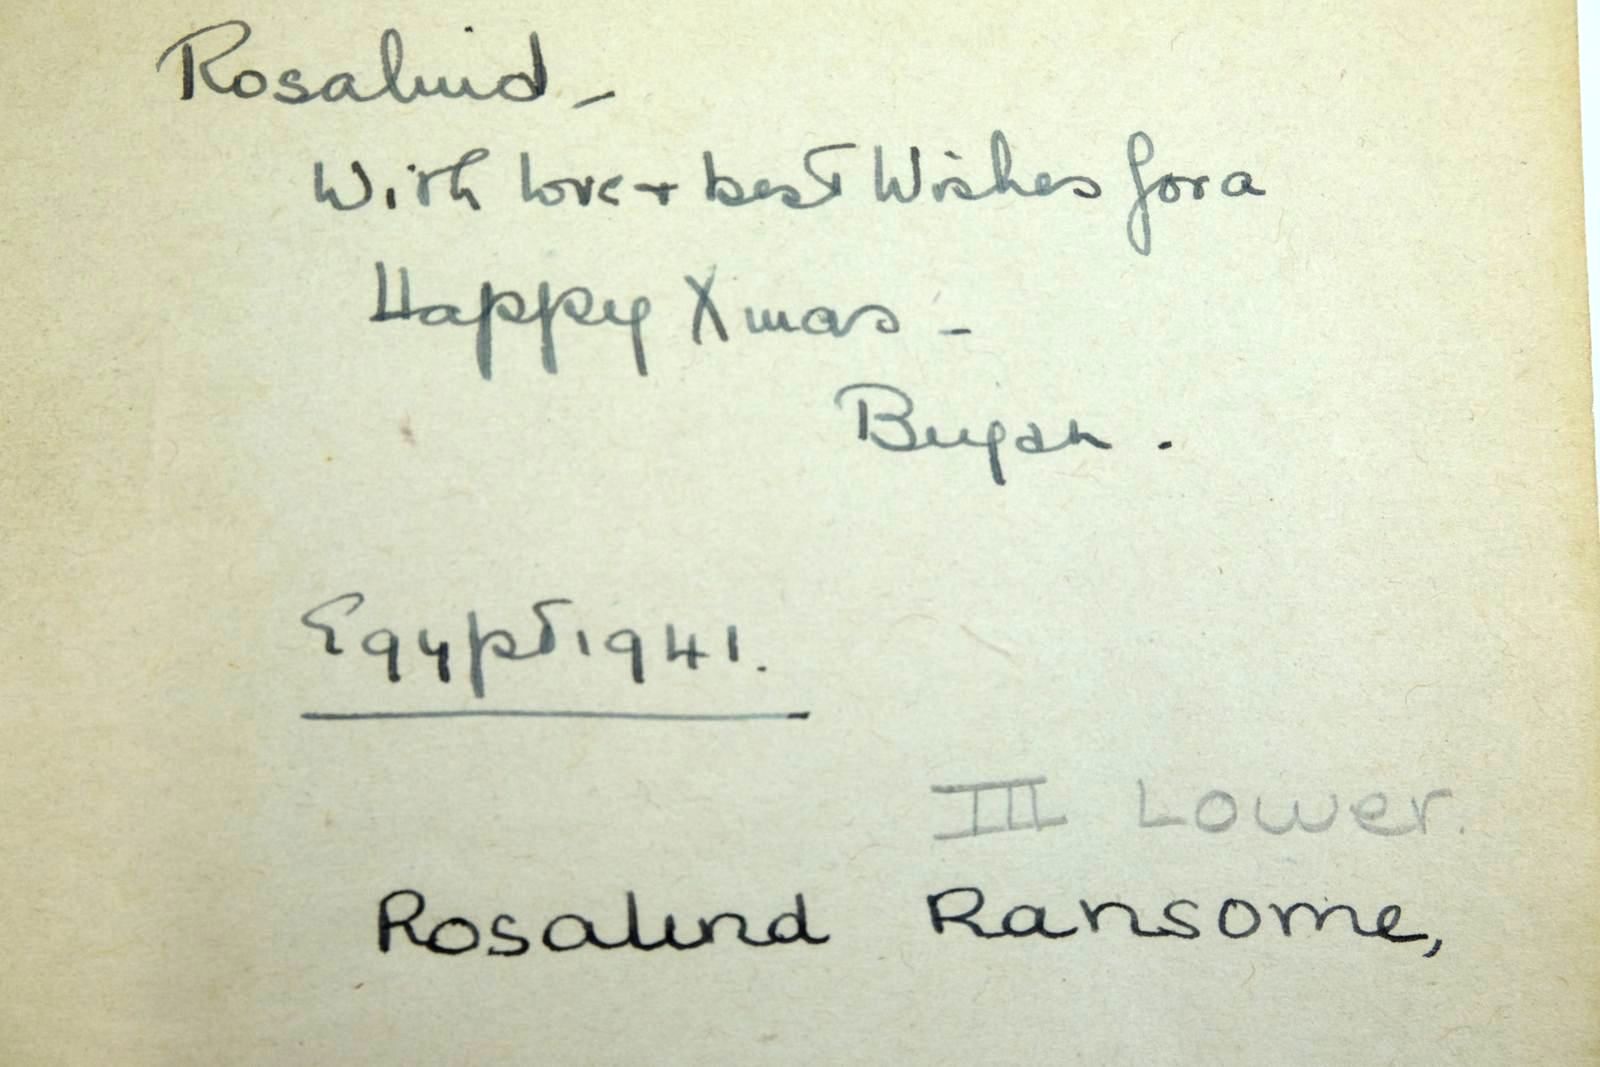 Rosalind –
With love + best Wishes for a
Happy Xmas –
Bryan .
Egypt 1941.
III Lower.
Rosalind Ransome,